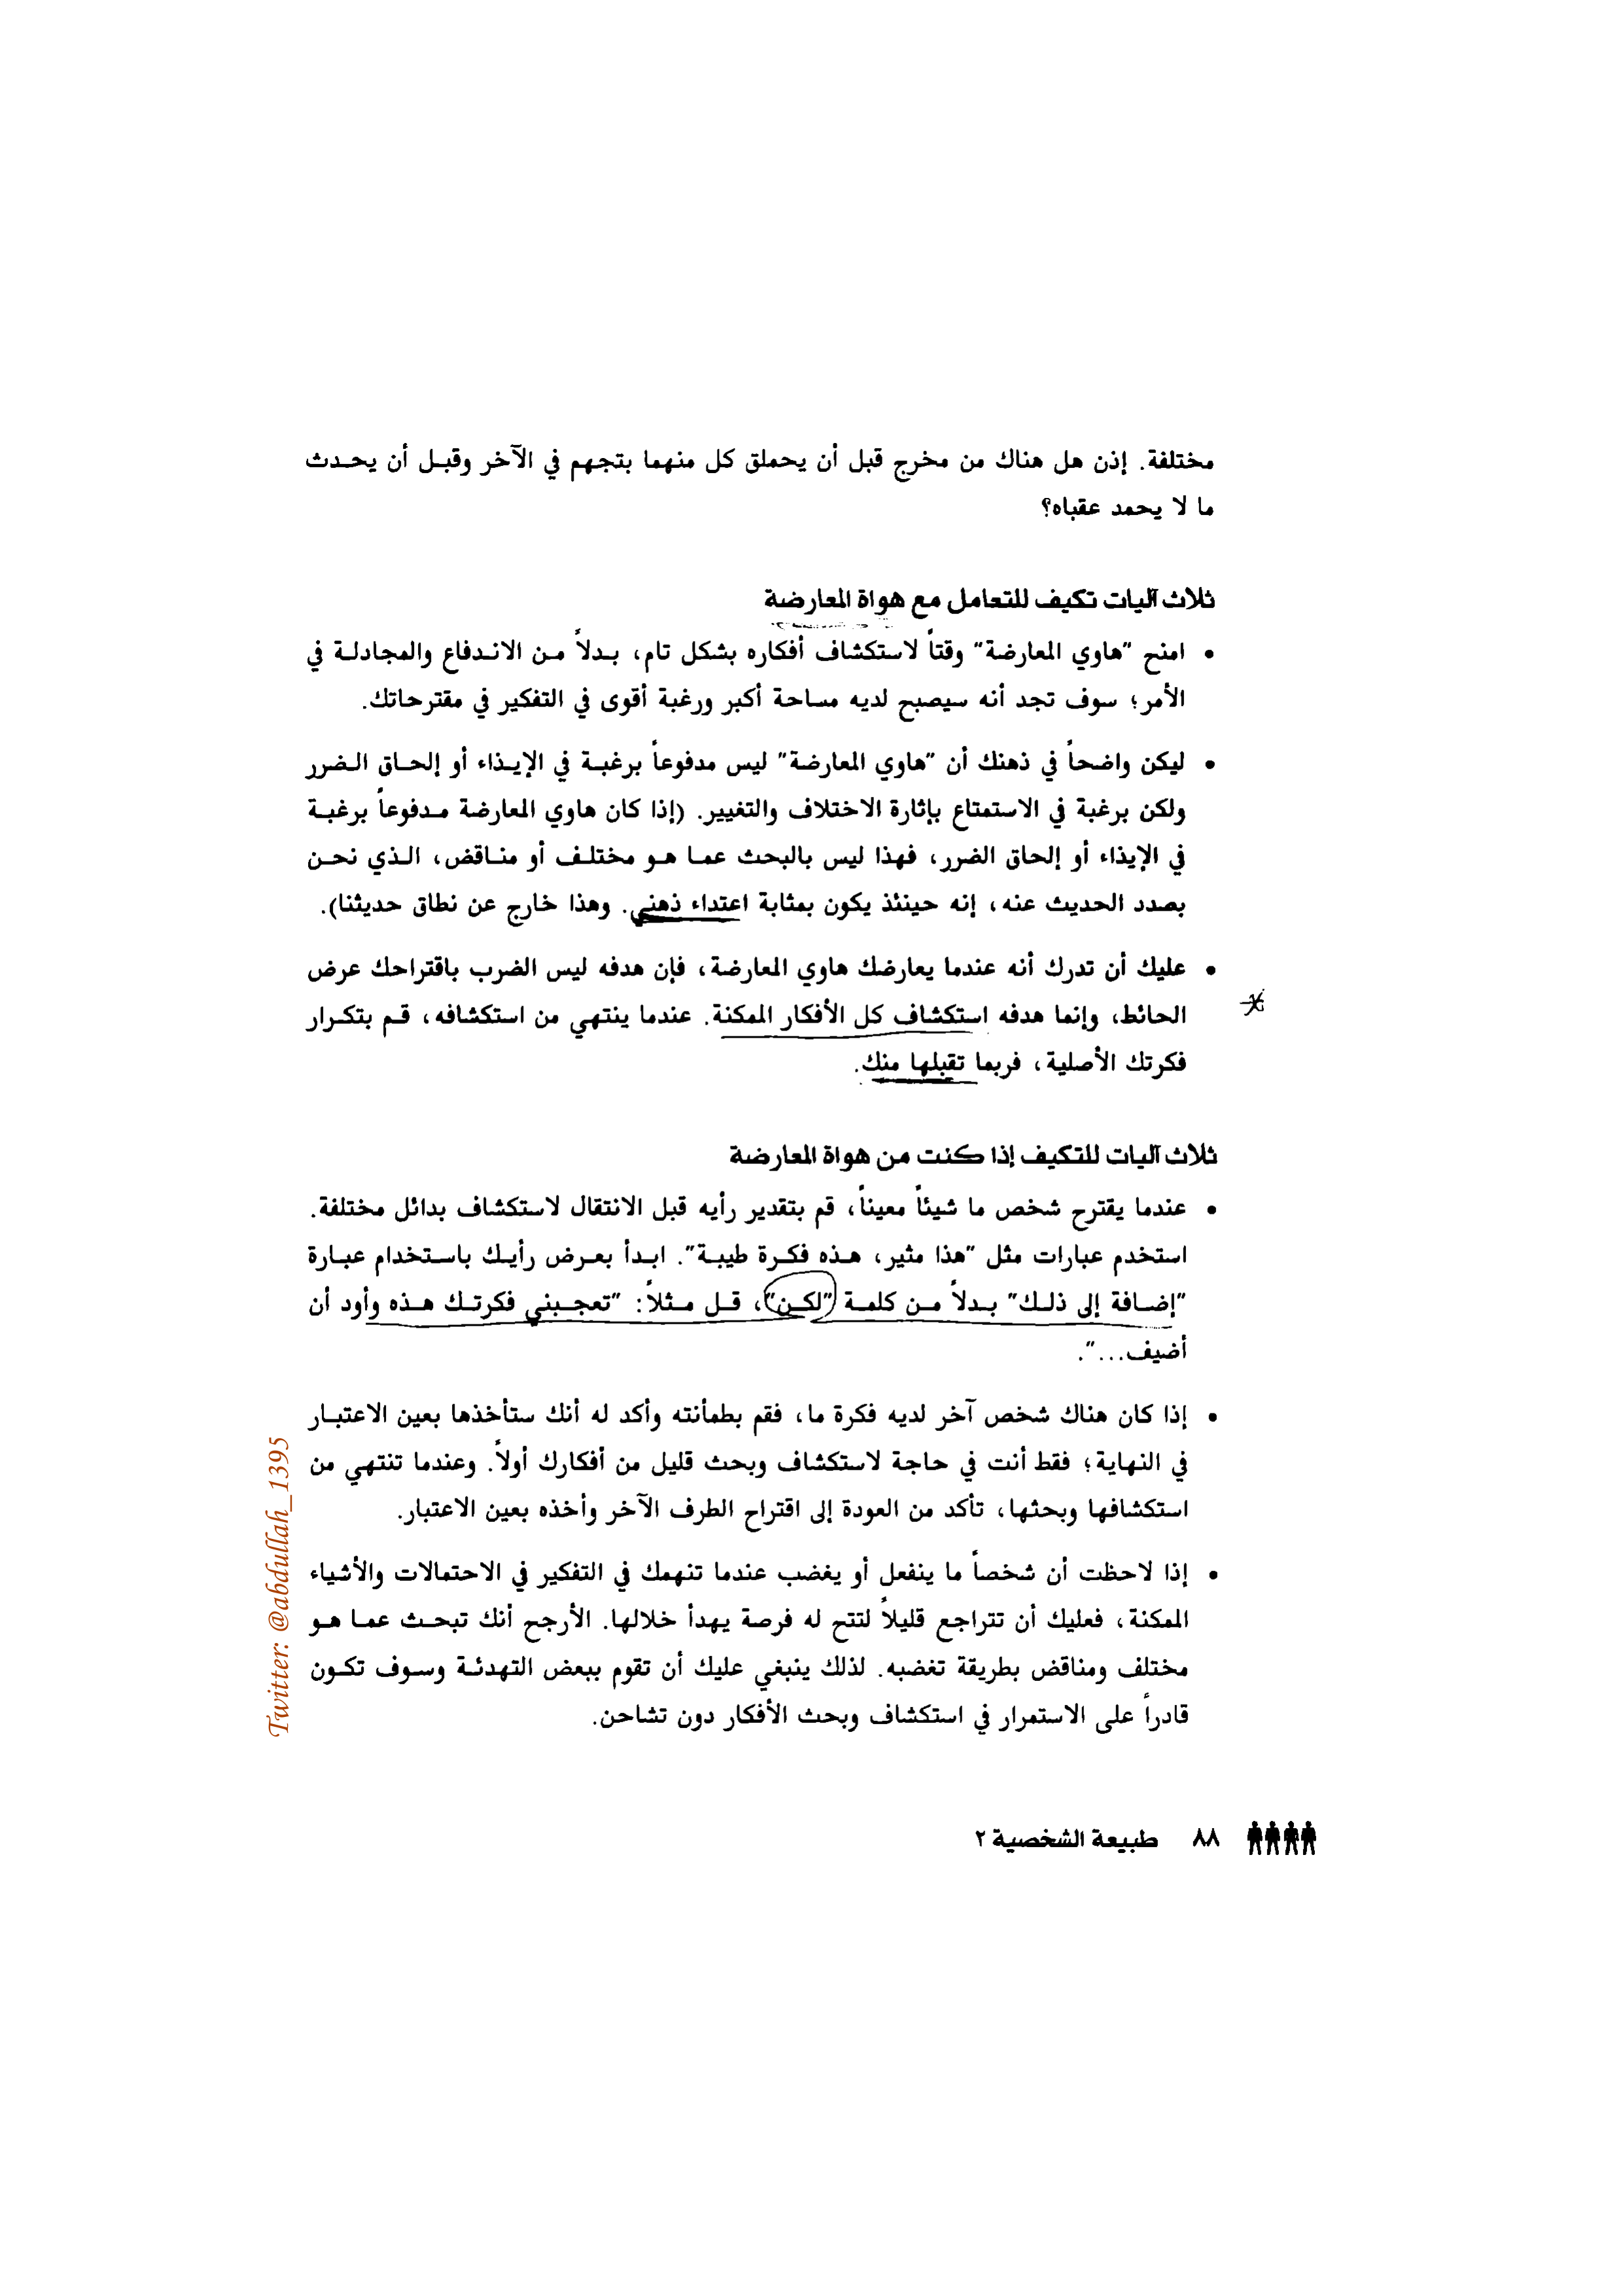 مختلفة. إذن هل هناك من مخرج قبل أن يحملق كل منهما بتجهم في الآخر وقبل أن يحدث
ما لا يحمد عقباه؟
ثلاث آليات تكيف للتعامل مع هواة المعارضة
• امنح "هاوي المعارضة" وقتاً لاستكشاف أفكاره بشكل تام، بدلاً من الاندفاع والمجادلة في
الأمر؛ سوف تجد أنه سيصبح لديه مساحة أكبر ورغبة أقوى في التفكير في مقترحاتك.
• ليكن واضحاً في ذهنك أن "هاوي المعارضة" ليس مدفوعاً برغبة في الإيذاء أو إلحاق الضرر
ولكن برغبة في الاستمتاع بإثارة الاختلاف والتغيير. (إذا كان هاوي المعارضة مدفوعاً برغبة
في الإيذاء أو إلحاق الضرر، فهذا ليس بالبحث عما هو مختلف أو مناقض، الذي نحن
بصدد الحديث عنه، إنه حينئذ يكون بمثابة اعتداء ذهني. وهذا خارج عن نطاق حديثنا).
• عليك أن تدرك أنه عندما يعارضك هاوي المعارضة، فإن هدفه ليس الضرب باقتراحك عرض
الحائط، وإنما هدفه استكشاف كل الأفكار الممكنة. عندما ينتهي من استكشافه، قم بتكرار
فكرتك الأصلية، فربما تقبلها منك.
ثلاث آليات للتكيف إذا كنت من هواة المعارضة
• عندما يقترح شخص ما شيئاً معيناً، قم بتقدير رأيه قبل الانتقال لاستكشاف بدائل مختلفة.
استخدم عبارات مثل "هذا مثير، هذه فكرة طيبة". ابدأ بعرض رأيك باستخدام عبارة
"إضافة إلى ذلك" بدلاً من كلمة "لكن"، قل مثلاً: "تعجبني فكرتك هذه وأود أن
أضيف...".
• إذا كان هناك شخص آخر لديه فكرة ما، فقم بطمأنته وأكد له أنك ستأخذها بعين الاعتبار
في النهاية؛ فقط أنت في حاجة لاستكشاف وبحث قليل من أفكارك أولاً. وعندما تنتهي من
استكشافها وبحثها، تأكد من العودة إلى اقتراح الطرف الآخر وأخذه بعين الاعتبار.
• إذا لاحظت أن شخصاً ما ينفعل أو يغضب عندما تنهمك في التفكير في الاحتمالات والأشياء
الممكنة، فعليك أن تتراجع قليلاً لتتح له فرصة يهدأ خلالها. الأرجح أنك تبحث عما هو
مختلف ومناقض بطريقة تغضبه. لذلك ينبغي عليك أن تقوم ببعض التهدئة وسوف تكون
قادراً على الاستمرار في استكشاف وبحث الأفكار دون تشاحن.
٨٨ طبيعة الشخصية ٢
Twitter: @abdullah_1395